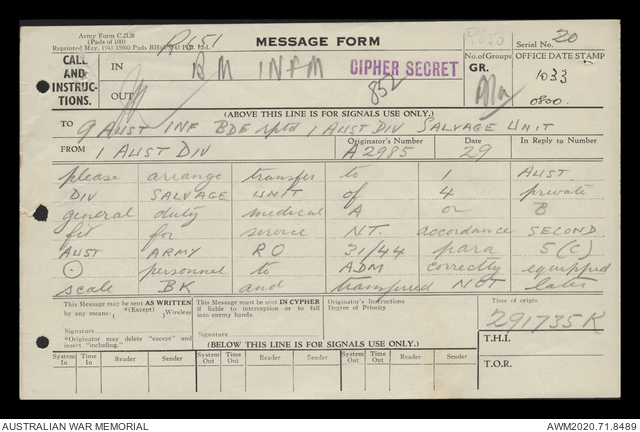 Army Form C.2128
(Pads of 100)
R651
MESSAGE FORM
Serial No. 20
CALL AND INSTRUC-TIONS.
IN
CIPHER SECRET
852
No. of Groups
GR.
OFFICE DATE STAMP
1033
0800.
OUT
(ABOVE THIS LINE IS FOR SIGNALS USE ONLY.)
TO 9 AUST INF BDE rptd 1 AUST DIV SALVAGE UNIT
FROM 1 AUST DIV
Originator's Number A2985
Date 29
In Reply to Number
please arrange transfer to 1 AUST
DIV SALVAGE UNIT of 4 private
general duty medical A or B
fit for service NT. accordance SECOND
AUST ARMY RO 31/44 para 5(C)
⊙ personnel to ADM correctly equipped
scale BK and transferred NOT later
This Message may be sent AS WRITTEN by any means: (*(Except) )Wireless
Signature
*Originator may delete "except" and insert "including."
This Message must be sent IN CYPHER if liable to interception or to fall into enemy hands.
Signature
Originator's Instructions
Degree of Priority
Time of origin
291735K
T.H.I.
T.O.R.
(BELOW THIS LINE IS FOR SIGNALS USE ONLY.)
System In Time In Reader Sender System Out Time Out Reader Sender System Out Time Out Reader Sender
AUSTRALIAN WAR MEMORIAL
AWM2020.71.8489